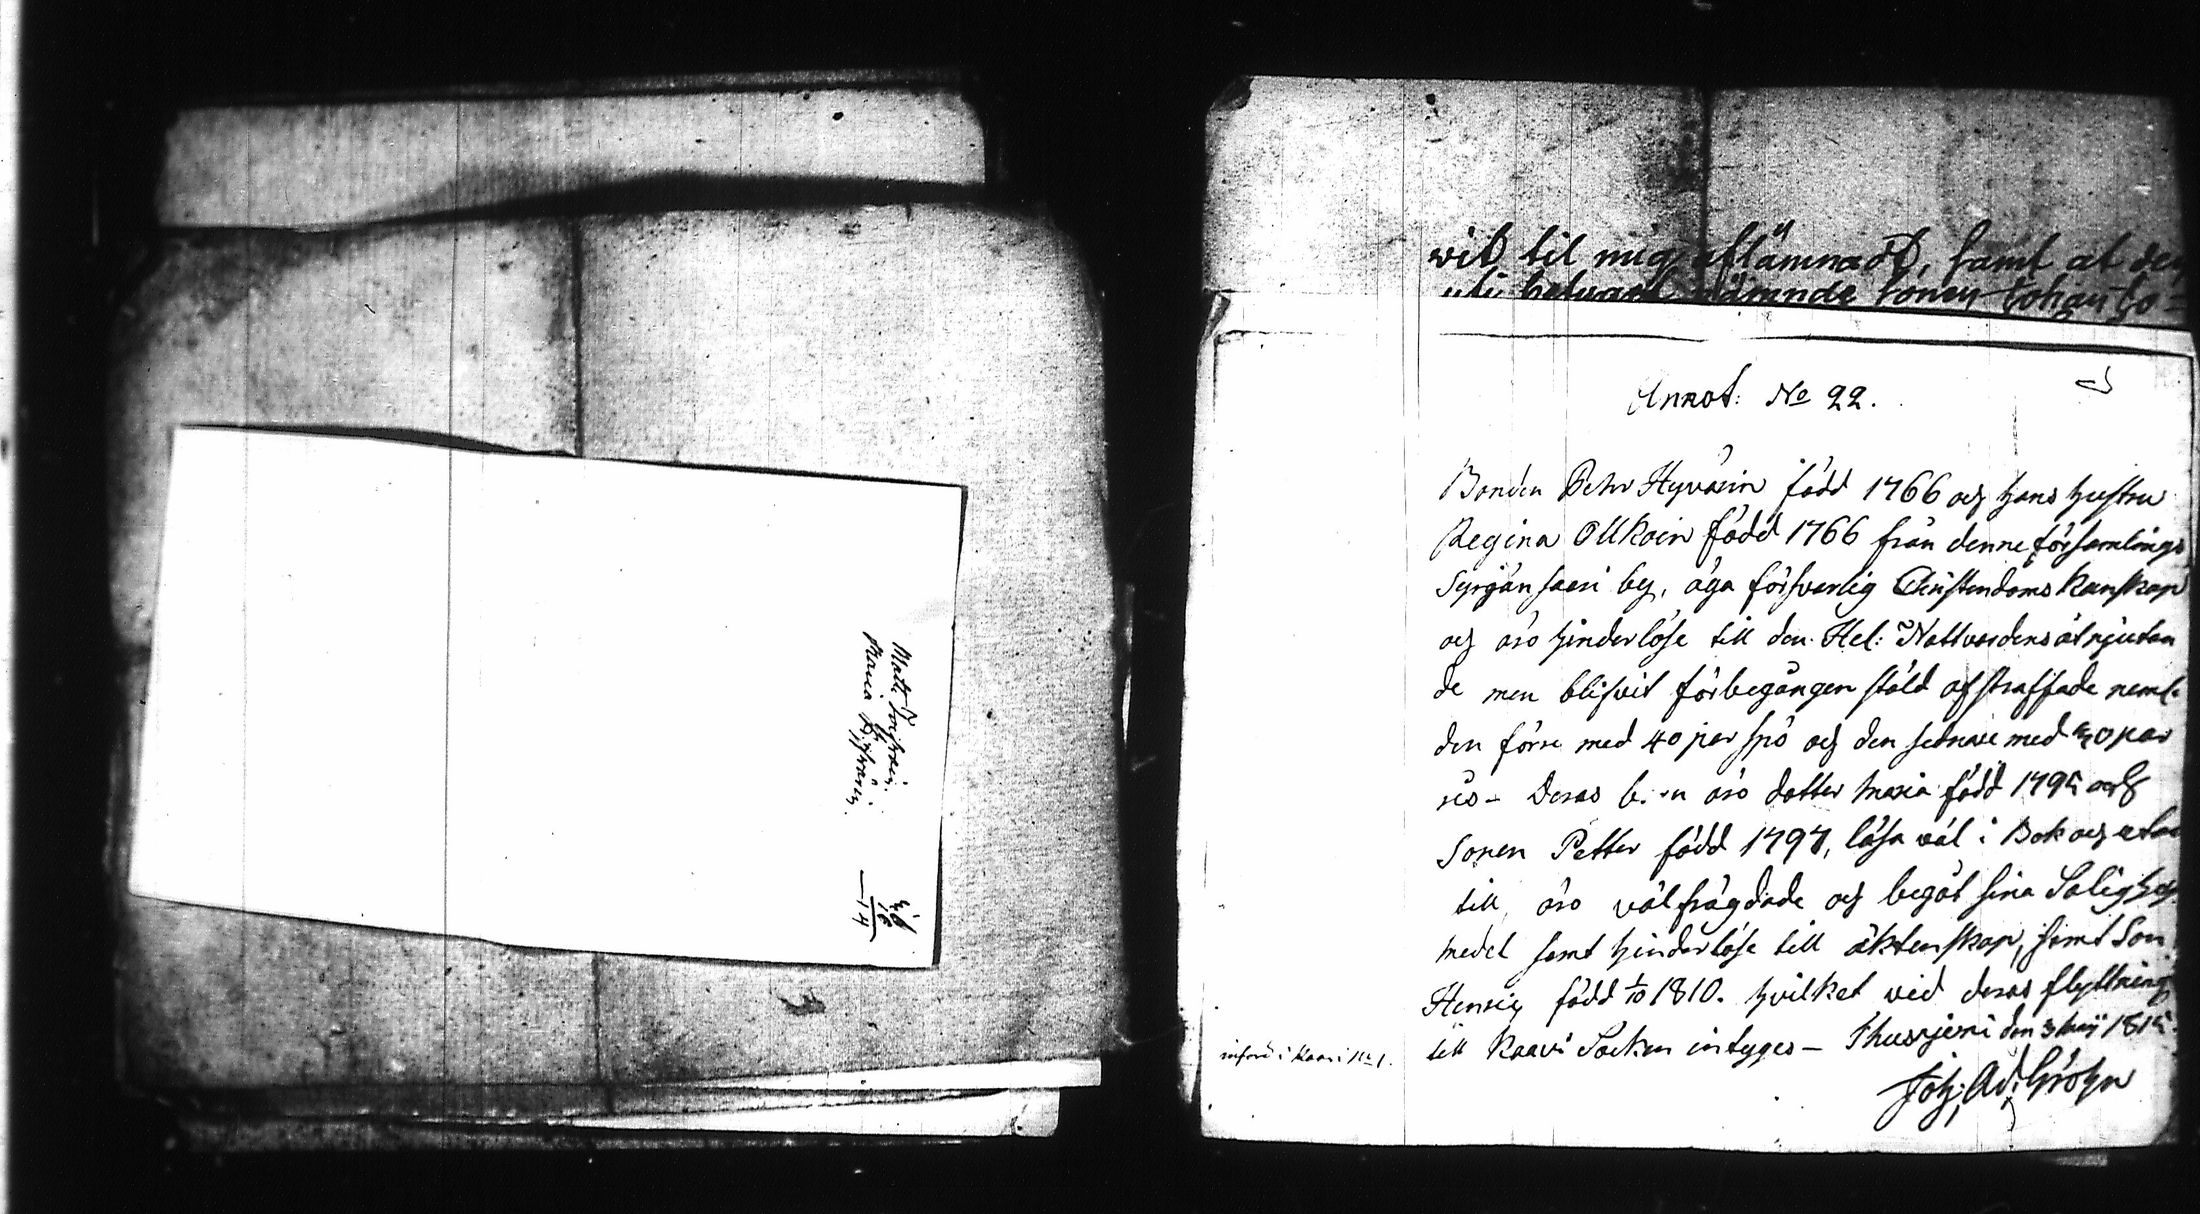 Matts Toiſvain.
Maria Hyvärin.
wid til mig aflämnadt, samt at den
nämnde sonen Johan
Annot: No 22.
Bonden Pehr Hyvärin född 1766 och hans hustru
Regina Ollkoin född 1766 från denne församlings
Syrjän saari by, äga försvarlig Christendoms kunskap
och äro hinderlöse till den Hel: Nattvardens åtnjutan
de men blifvit för begången stöld afstraffade neml.
den förre med 40 par spö och den sednare med 30 par
ris – Deras barn äro dotter Maria född 1795 och
Sonen Petter född 1797, läsa väl i Bok och utan
till, äro välfrägdade och begåt sina Salighets
medel samt hinderlöse till äktenskap, samt Son
Henric född 1/10 1810. hvilket vid deras flyttning
till Kaavi Socken intyges – Thusnjemi den 3 Maij 1815.
införd i Kaavi No 1.
Joh: Ad: Gröhn